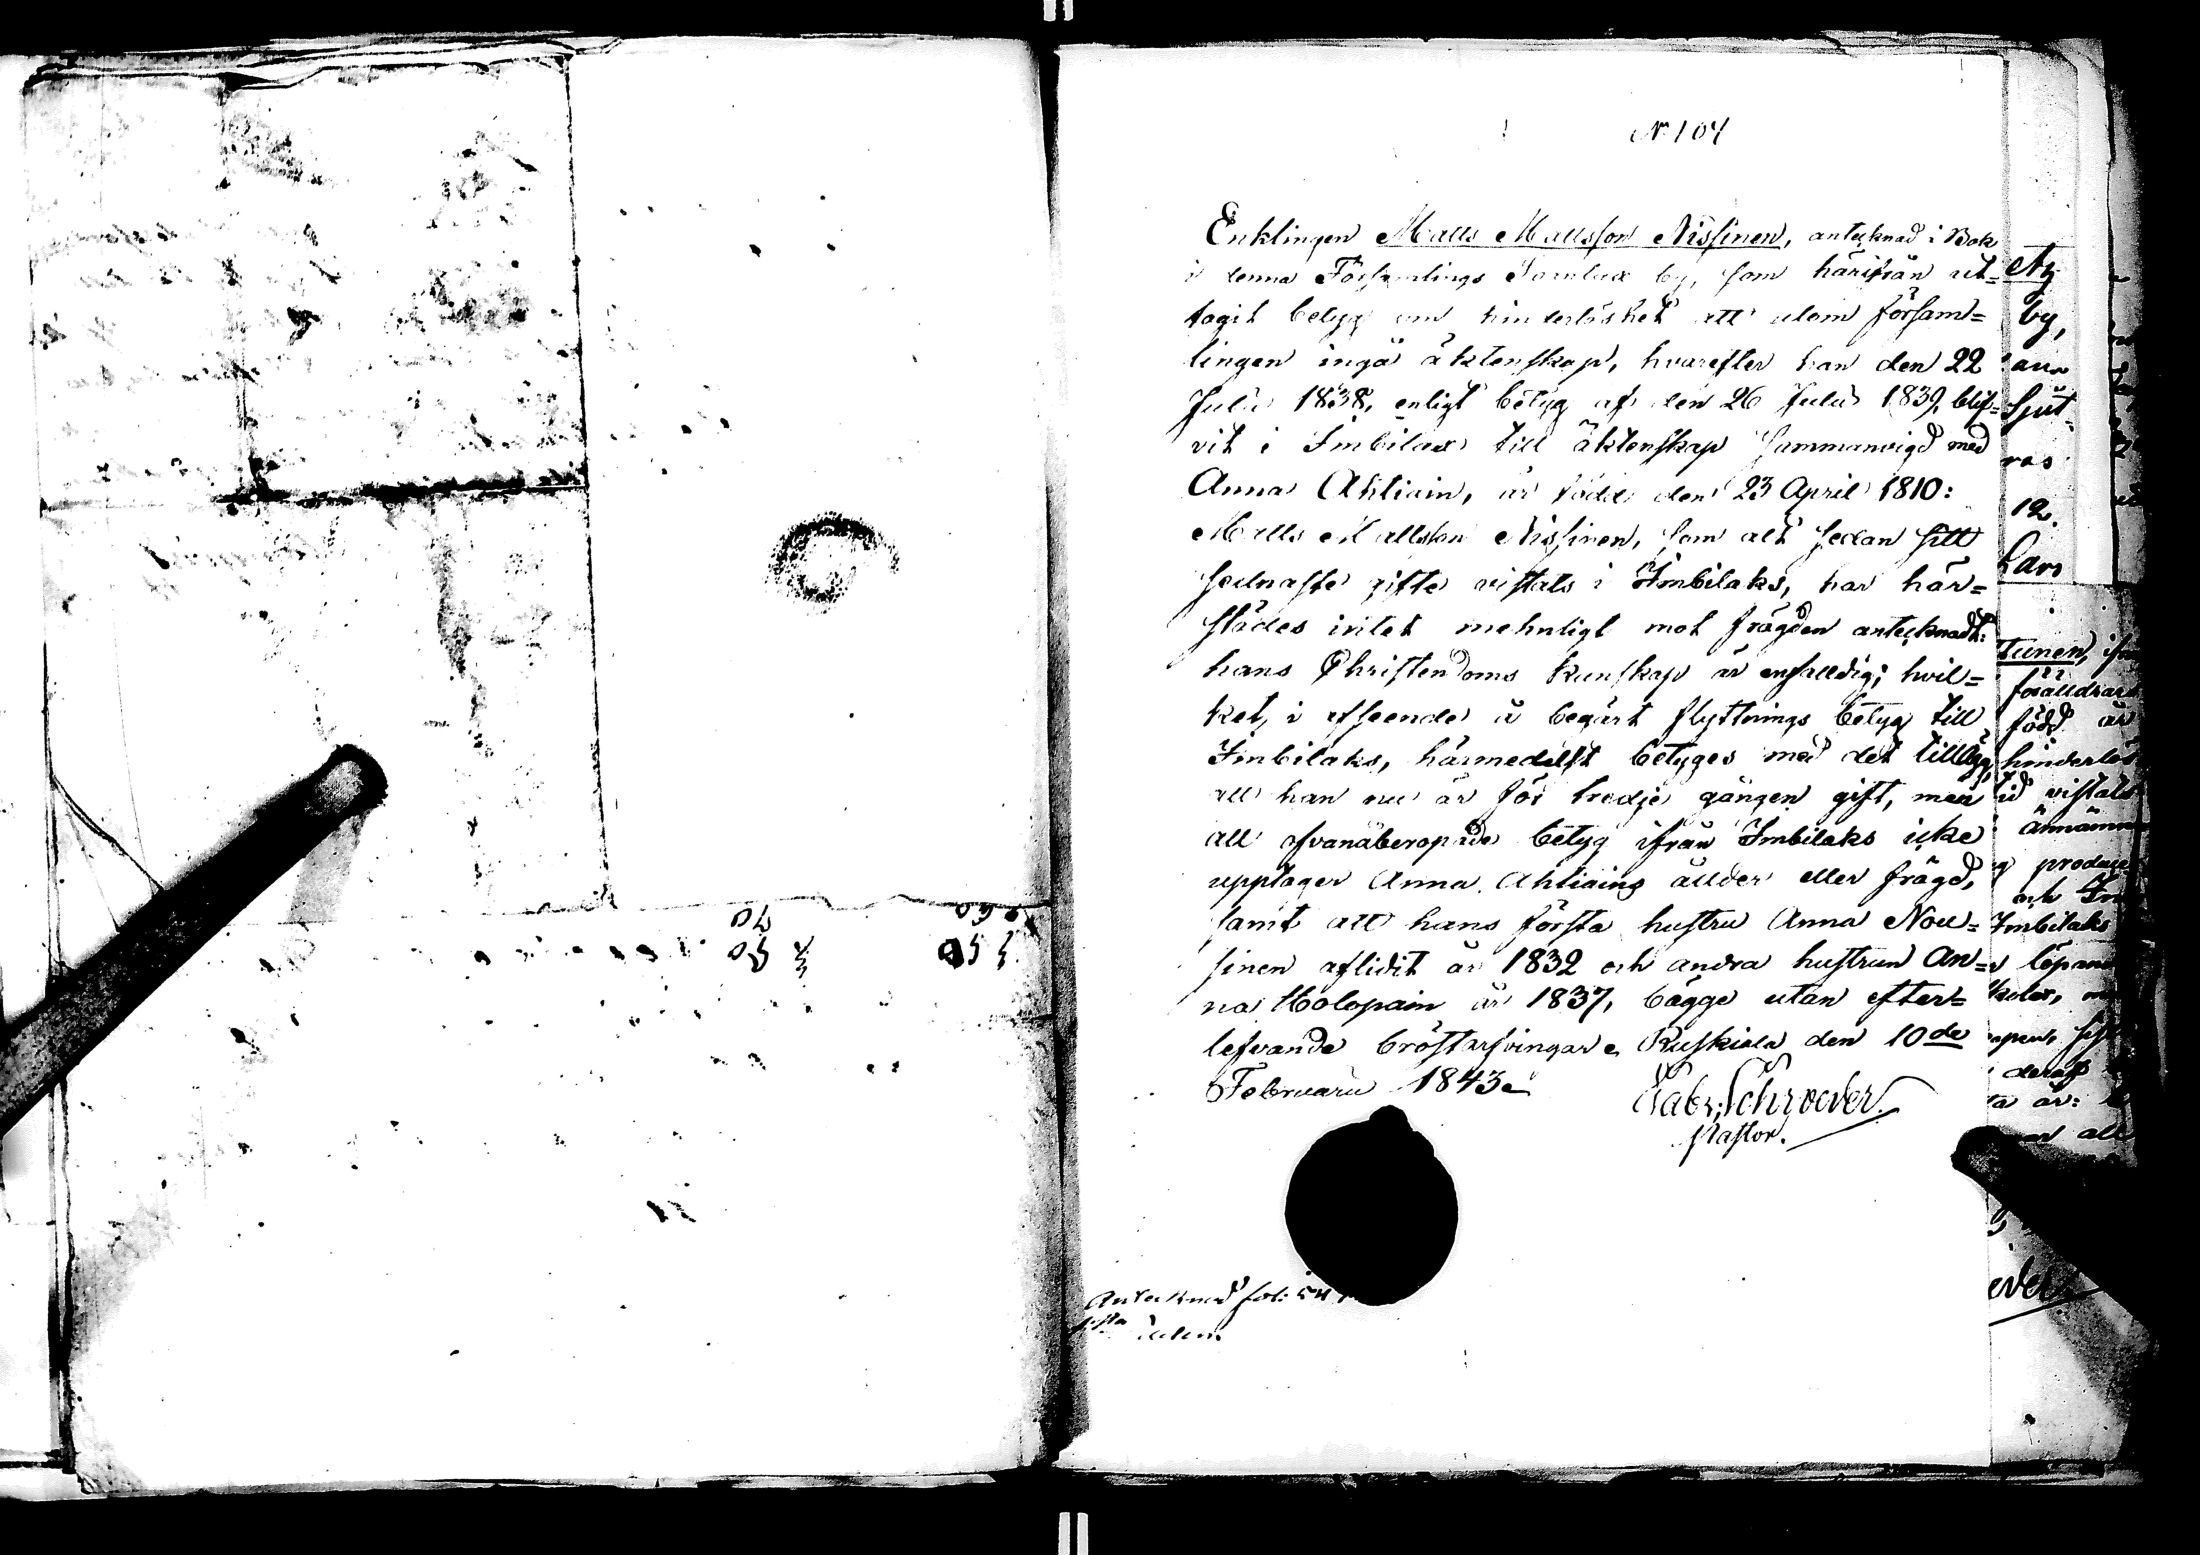 No 104
Enklingen Matts Mattsson Nissinen, antecknad i Bok
i denna Församlings by, som härifrån ut=
tagit betyg om hinderlöshet att utom försam=
lingen ingå äktenskap, hvarefter han den 22
Julii 1838, enligt betyg af den 26 Julii 1839, blif=
vit i Imbilax till äktenskap sammanvigd med
Anna Ahtiain, är född den 23 April 1810:
Matts Mattsson Nissinen, som alt sedan sitt
sednaste gifte vistats i Imbilaks, har här=
städes intet mehnligt mot frägden antecknadt:
hans Christendoms kunskap är enfalldig; hvil=
ket, i afseende å begärt flyttnings betyg till
Imbilaks, härmedelst betyges med det tillägg,
att han nu är för tredje gången gift, men
att ofvanåberopade betyg ifrån Imbilaks icke
upptager Anna Ahtiains ållder eller frägd,
samt att hans första hustru Anna Nou=
sinen aflidit år 1832 och andra hustrun An=
na Holopain år 1837, bägge utan efter=
lefvande bröstarfvingar. Ruskiala den 10de
Februarii 1843.
Gabr: Schroeder
Pastor.
Antecknad fol: 54
by,
Sjut
ras
12.
Lars
tunen,
föälldrar
född är
hinderlös
tid vistats
och Im
Imbilaks
70
50